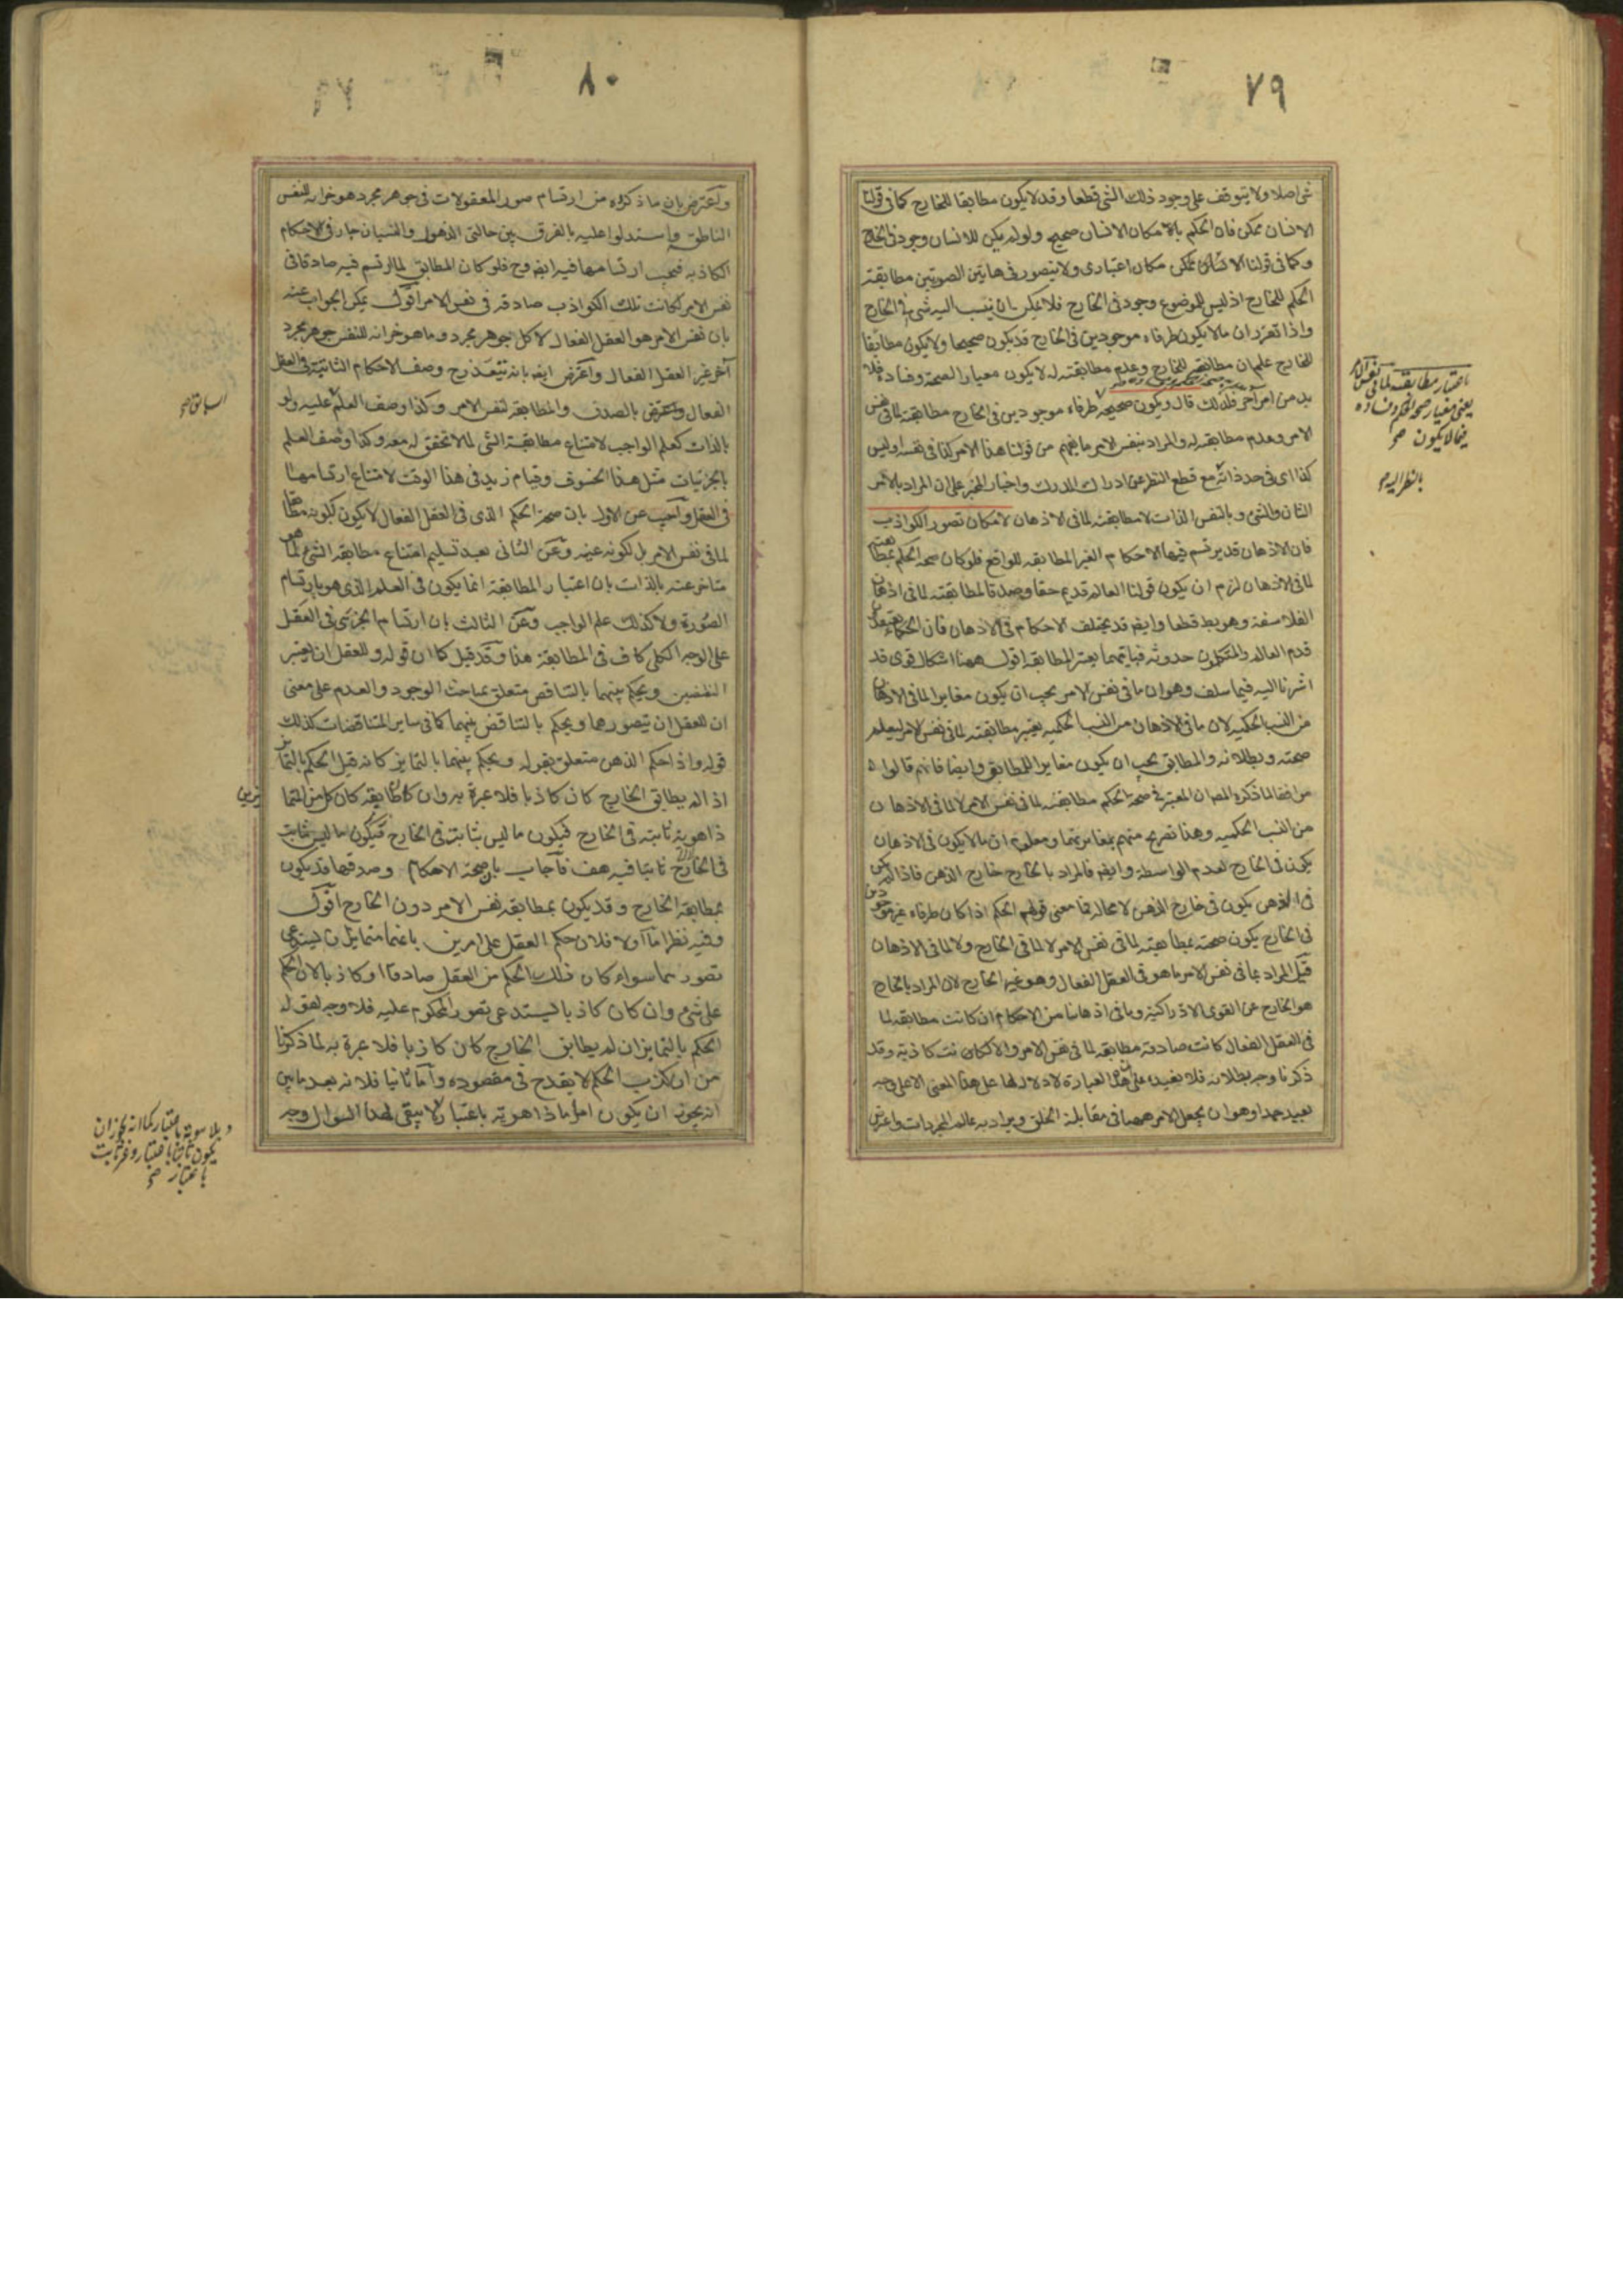 ٧٩
شى اصلا ولا يتوقف على وجود ذلك الشى قطعا وقد لا يكون مطابقا للخارج كما فى قولنا
الانسان ممكن فان الحكم بامكان الانسان صحيح ولو لم يكن للانسان وجود فى الخارج
وكما فى قولنا الانسان ممكن مكان اعتبارى ولا يتصور فى هاتين الصورتين مطابقة
الحكم للخارج اذ ليس للموضوع وجود فى الخارج فلا يمكن ان ينسب اليه شى فى الخارج
واذا تقرر ان ما لا يكون طرفاه موجودين فى الخارج قد يكون صحيحا ولا يكون مطابقا
للخارج علم ان مطابقته للخارج وعدم مطابقته له لا يكون معيار الصحة وفساده فلا
بد من امر آخر فلذلك قال ويكون صحيحه طرفاه موجودين فى الخارج مطابقة لما فى نفس
الامر وعدم مطابقه له والمراد بنفس الامر ما يفهم من قولنا هذا الامر كذا فى نفسه او ليس
كذا اى فى حد ذاته مع قطع النظر عن ادراك المدرك واخبار المخبر على ان المراد بالامر
الشان والشى وبالنفس الذات لا مطابقته لما فى الاذهان لامكان تصور الكواذب
فان الاذهان قد يرتسم فيها الاحكام الغير المطابقه للواقع فلو كان صحة الحكم بمطابقته
لما فى الاذهان لزم ان يكون قولنا العالم قديم حقا وصدقا لمطابقته لما فى اذهان
الفلاسفة وهو بط قطعا وايضا قد يختلف الاحكام فى الاذهان فان الحكماء يعتقد
قدم العالم والمتكلمون حدوثه فبايهما يعتبر المطابقه اقول ههنا اشكال قوى قد
اشرنا اليه فيما سلف وهو ان ما فى نفس الامر يجب ان يكون مغايرا لما فى الاذهان
من النسب الحكميه لان ما فى الاذهان من النسب الحكميه يعتبر مطابقته لما فى نفس الامر ليعلم
صحته وبطلانه والمطابق يجب ان يكون مغايرا للمطابق وايضا فانهم قالوا
من النسب الحكميه وهذا تصريح منهم بمغايرتهما ومعلوم ان ما لا يكون فى الاذهان
يكون فى الخارج لعدم الواسطه وايضا فالمراد بالخارج خارج الذهن فاذا لم يكن
فى الذهن يكون فى خارج الذهن لا محاله فما معنى قولهم الحكم اذا كان طرفاه غير موجودين
فى الخارج يكون صحته بمطابقته لما فى نفس الامر لا لما فى الخارج ولا لما فى الاذهان
قيل المراد بما فى نفس الامر ما هو فى العقل الفعال وهو غير الخارج لان المراد بالخارج
هو الخارج عن القوى الادراكية وما فى اذهاننا من الاحكام ان كانت مطابقه لما
فى العقل الفعال كانت صادقه مطابقه لما فى نفس الامر والا كانت كاذبة وقد
ذكرنا وجه بطلانه فلا نعيده على ان هذه العبارة لا دلالة لها على هذا المعنى الا على وجه
بعيد جدا وهو ان يجعل الامر ههنا فى مقابلة الخلق ويراد به عالم المجردات واعترض
باعتبار مطابقته لما فى نفس الامر
يعنى معيار صحة الحكم وفساده
فيما لا يكون صح
بالنظر اليه
٨٠
واعترض بان ما ذكروه من ارتسام صور المعقولات فى جوهر مجرد هو خزانه للنفس
الناطقة واستدلوا عليه بالفرق بين حالتى الذهول والنسيان جار فى الاحكام
الكاذبه فيجب ارتسامها فيه ايضا وح فلو كان المطابق لما ارتسم فيه صادقا فى
نفس الامر لكانت تلك الكواذب صادقه فى نفس الامر اقول يمكن الجواب عنه
بان نفس الامر هو العقل الفعال لا كل جوهر مجرد وما هو خزانه للنفس جوهر مجرد
آخر غير العقل الفعال واعترض ايضا بانه يتعذر ح وصف الاحكام الثابتة فى العقل
الفعال بالصدق والمطابقه لنفس الامر وكذا وصف العلم عليه ولو
بالذات كعلم الواجب لامتناع مطابقة الشى لما لا تحقق له معه وكذا وصف العلم
بالجزئيات مثل هذا الخسوف وقيام زيد فى هذا الوقت لامتناع ارتسامها
فى العقل واجيب عن الاول بان صحة الحكم الذى فى العقل الفعال لا يكون لكونه مطابقا
لما فى نفس الامر بل لكونه عينه وعن الثانى بعد تسليم امتناع مطابقه الشى لما هو
متاخر عنه بالذات بان اعتبار المطابقة انما يكون فى العلم الذى هو بارتسام
الصورة ولا كذلك علم الواجب وعن الثالث بان ارتسام الجزئى فى العقل
على الوجه الكلى كاف فى المطابقة هذا وقد قيل كما ان قوله وللعقل ان يعتبر
النقيضين ويحكم بينهما بالتناقض متعلق بمباحث الوجود والعدم على معنى
ان للعقل ان يتصورهما ويحكم بالتناقض بينهما كما فى ساير المتناقضات كذلك
قوله واذا حكم الذهن متعلق بقوله ويحكم بينهما بالتمايز كانه قيل الحكم بالتمايز
اذا لم يطابق الخارج كان كاذبا فلا عبرة به وان طابقه كان كل من المتمايزين
ذا هوية ثابته فى الخارج فيكون ما ليس بثابت فى الخارج فيكون ما ليس بثابت
فى الخارج ثابتا فيه هف فاجاب بان صحة الاحكام وصدقها قد يكون
بمطابقه الخارج وقد يكون بمطابقه نفس الامر دون الخارج اقول
وفيه نظر اما اولا فلان حكم العقل على امرين بانهما متمايزان يستدعى
تصورهما سواء كان ذلك الحكم من العقل صادقا او كاذبا لان الحكم
على شى وان كان كاذبا يستدعى تصور المحكوم عليه فلا وجه لقوله
الحكم بالتمايز ان لم يطابق الخارج كان كاذبا فلا عبرة به لما ذكرنا
من ان كذب الحكم لا يقدح فى مقصوده واما ثانيا فلانه بعد ما بين
انه يجوز ان يكون امر ما ذا هويه باعتبار لا يبقى لهذا السوال وجه
السابق صح
وبلا هوية باعتبار كما انه يجوز ان
يكون ثابتا باعتبار وغير ثابت
باعتبار صح